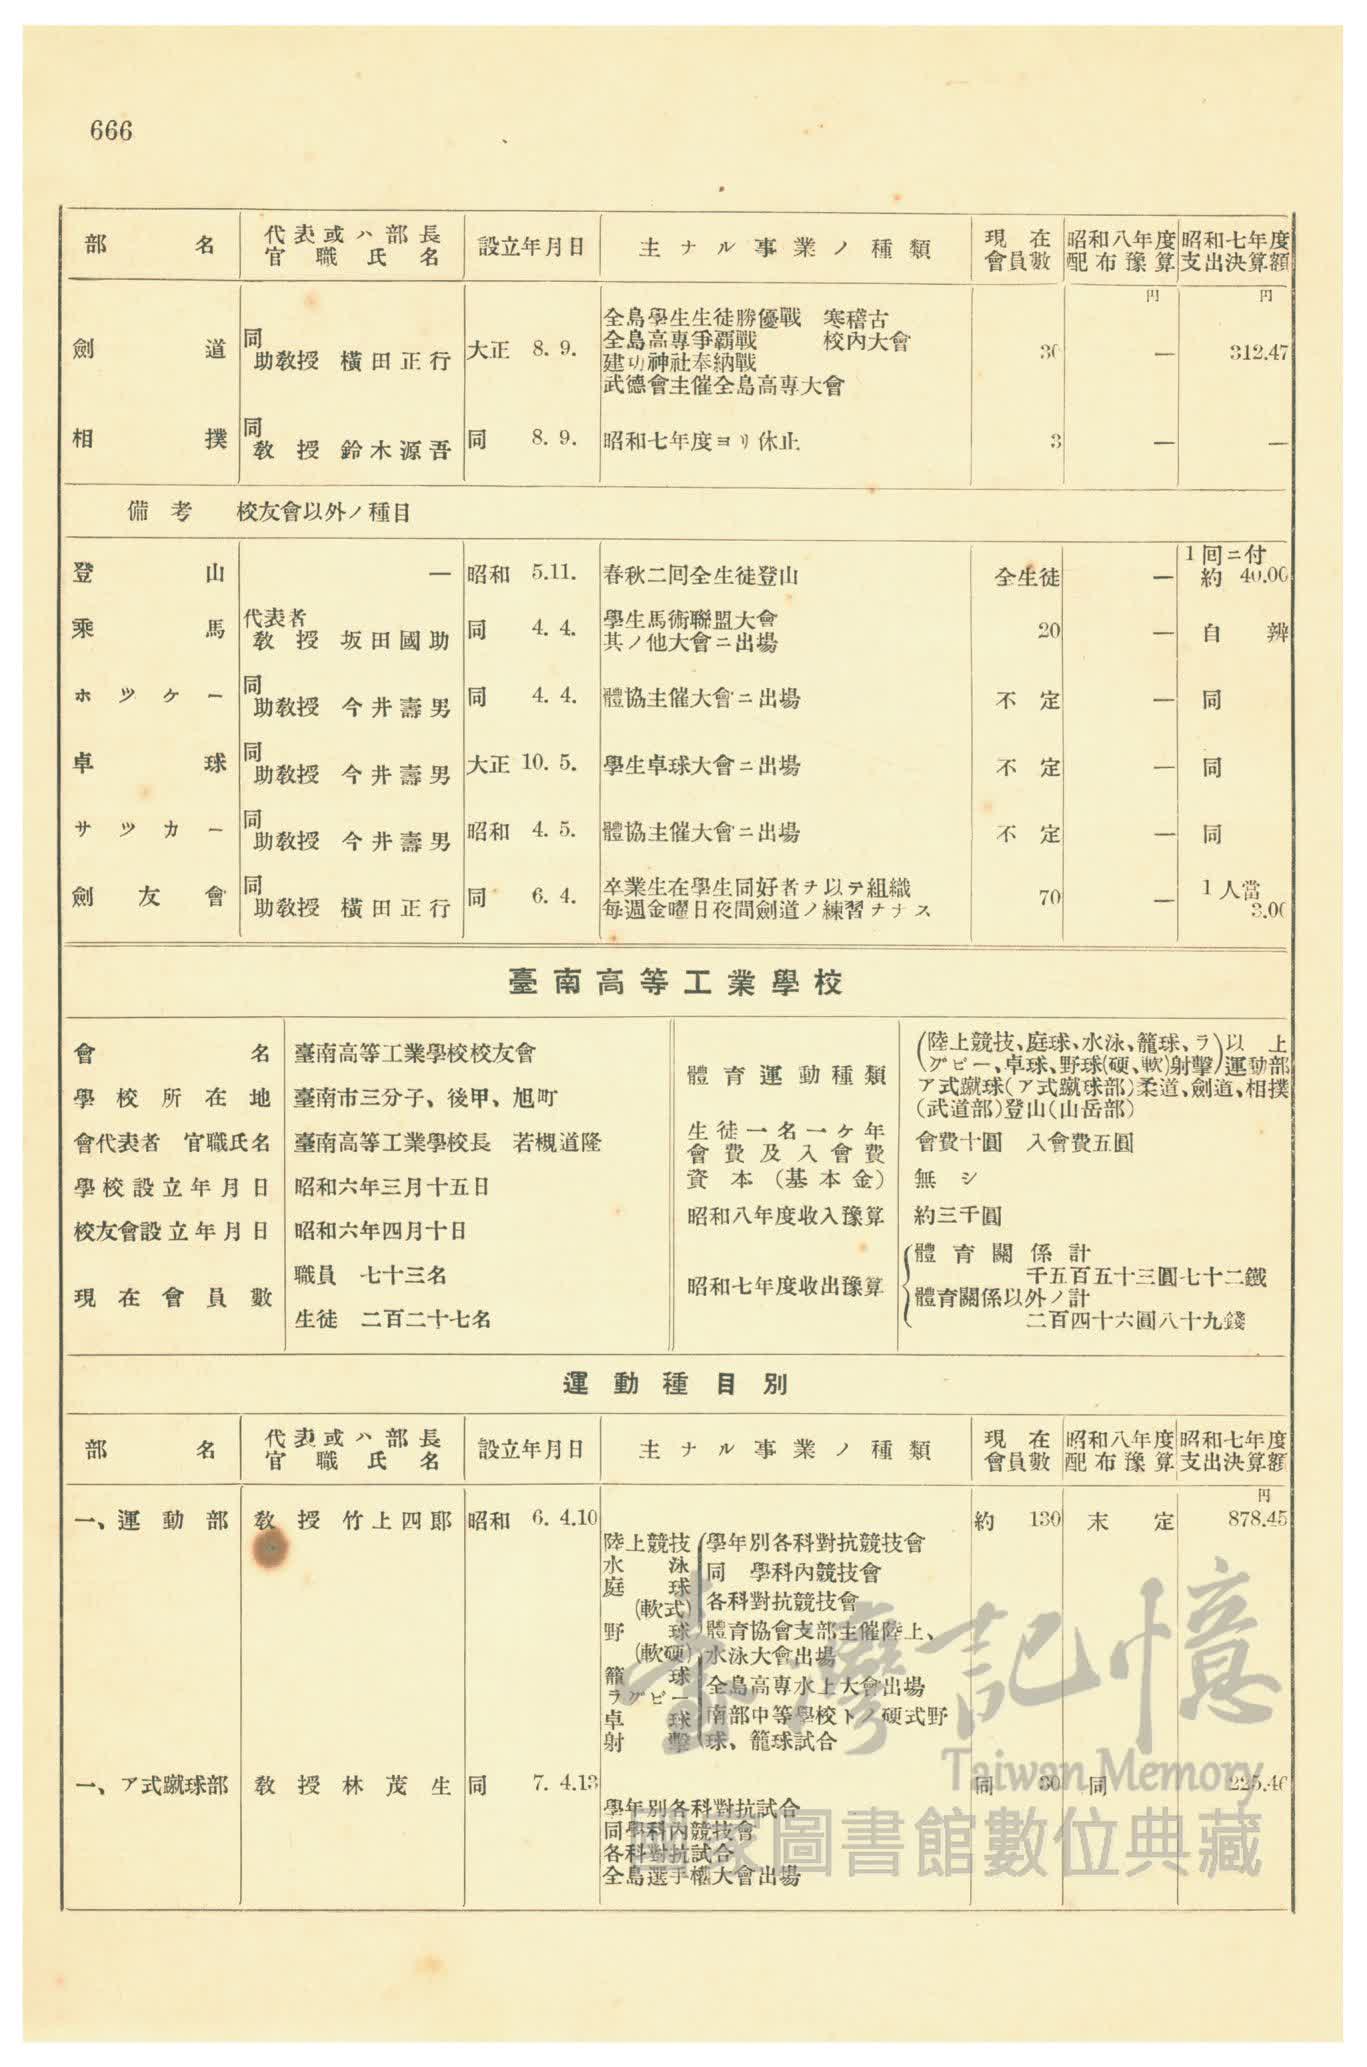 666
部名 代表或ハ部長官職氏名 設立年月日 主ナル事業ノ種類 現在會員數 昭和八年度配布豫算 昭和七年度支出決算額
円 円
劍道 同 助教授 橫田正行 大正 8. 9. 全島學生生徒勝優戰 寒稽古
全島高專爭覇戰 校內大會
建功神社奉納戰
武德會主催全島高專大會
30 — 312.47
相撲 同 教授 鈴木源吾 同 8. 9. 昭和七年度ヨリ休止 3 — —
備考 校友會以外ノ種目
登山 — 昭和 5.11. 春秋二回全生徒登山 全生徒 — 1回ニ付 約 40.00
乘馬 代表者 教授 坂田國助 同 4. 4. 學生馬術聯盟大會
其ノ他大會ニ出場
20 — 自辨
ホツケー 同 助教授 今井壽男 同 4. 4. 體協主催大會ニ出場 不定 — 同
卓球 同 助教授 今井壽男 大正 10. 5. 學生卓球大會ニ出場 不定 — 同
サツカー 同 助教授 今井壽男 昭和 4. 5. 體協主催大會ニ出場 不定 — 同
劍友會 同 助教授 橫田正行 同 6. 4. 卒業生在學生同好者ヲ以テ組織
每週金曜日夜間劍道ノ練習ヲナス
70 — 1人當 3.00
臺南高等工業學校
會名 臺南高等工業學校校友會
學校所在地 臺南市三分子、後甲、旭町
會代表者 官職氏名 臺南高等工業學校長 若槻道隆
學校設立年月日 昭和六年三月十五日
校友會設立年月日 昭和六年四月十日
現在會員數 職員 七十三名
生徒 二百二十七名
體育運動種類 (陸上競技、庭球、水泳、籠球、ラグビー、卓球、野球(硬、軟)射擊)以上運動部
ア式蹴球(ア式蹴球部)柔道、劍道、相撲
(武道部)登山(山岳部)
生徒一名一ヶ年會費及入會費 會費十圓 入會費五圓
資本(基本金) 無シ
昭和八年度收入豫算 約三千圓
昭和七年度收出豫算 體育關係計
千五百五十三圓七十二錢
體育關係以外ノ計
二百四十六圓八十九錢
運動種目別
部名 代表或ハ部長官職氏名 設立年月日 主ナル事業ノ種類 現在會員數 昭和八年度配布豫算 昭和七年度支出決算額
円
一、運動部 教授 竹上四郎 昭和 6. 4.10 約 130 末定 878.45
陸上競技
水泳
庭球
(軟式)
野球
(軟硬)
籠球
ラグビー
卓球
射擊
學年別各科對抗競技會
同 學科內競技會
各科對抗競技會
體育協會支部主催陸上、
水泳大會出場
全島高專水上大會出場
南部中等學校トノ硬式野
球、籠球試合
一、ア式蹴球部 教授 林茂生 同 7. 4.13 同 30 同 225.46
學年別各科對抗試合
同學科內競技會
各科對抗試合
全島選手權大會出場
臺灣記憶
Taiwan Memory
國家圖書館數位典藏